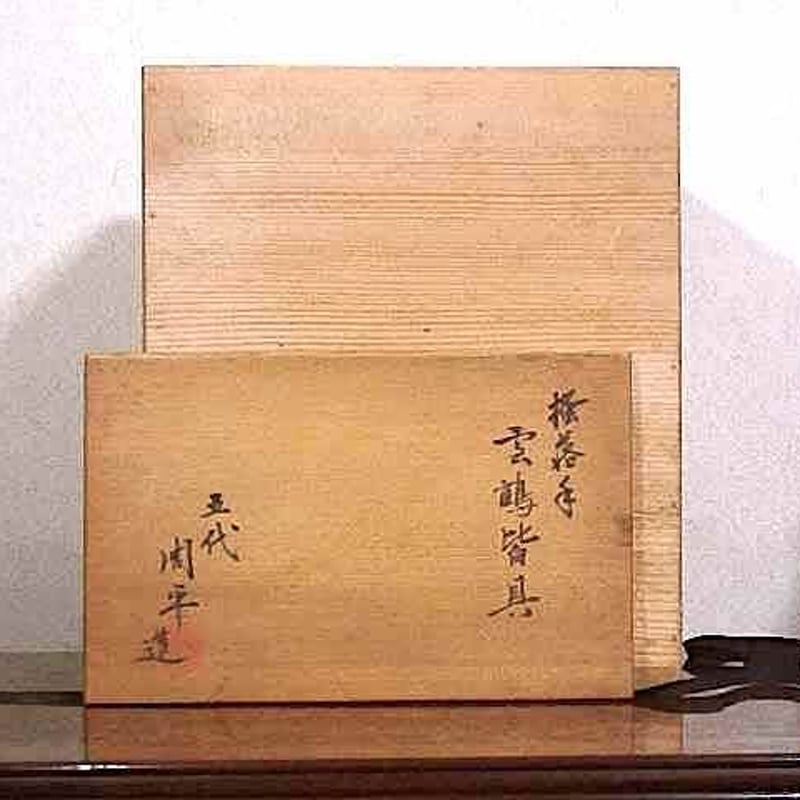 掻落手
雲鶴皆具
五代
周平造